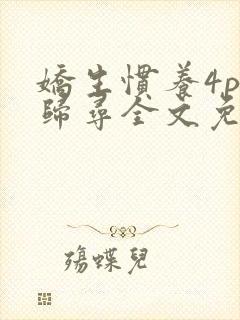 嬌生慣養4p
歸尋全文免
殤蝶兒